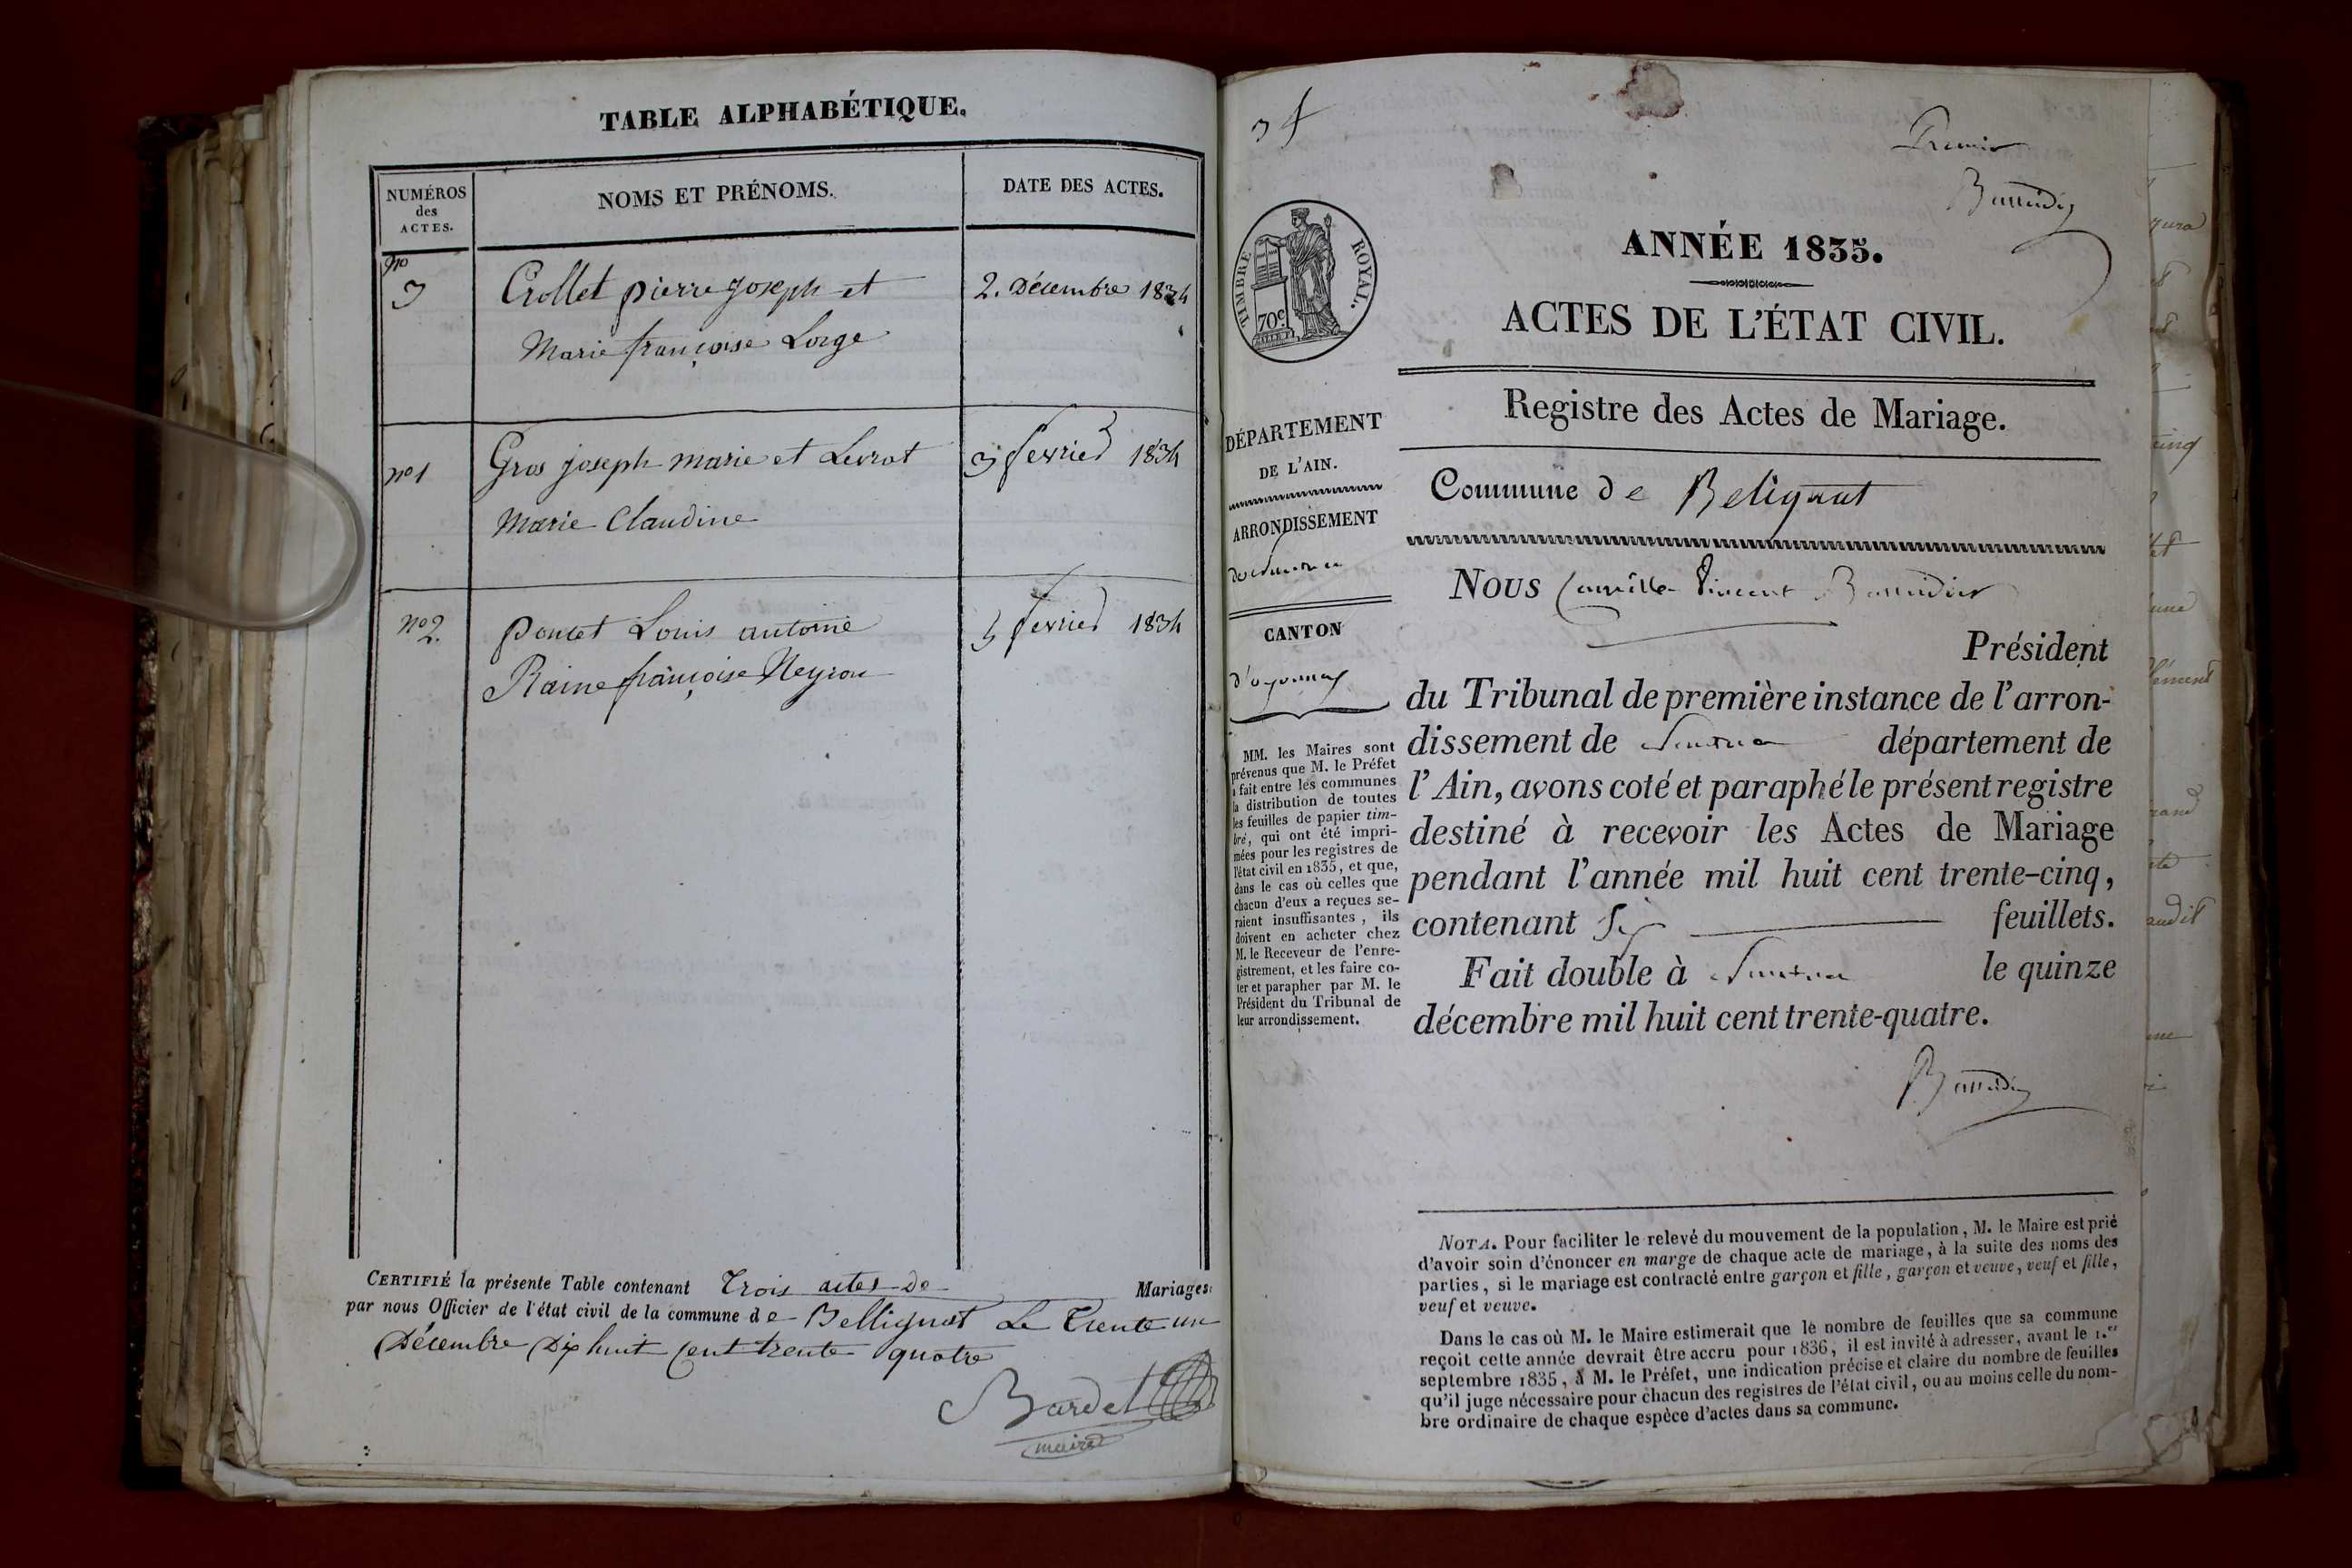 TABLE ALPHABÉTIQUE.
NUMÉROS
des
ACTES.
NOMS ET PRÉNOMS.
DATE DES ACTES.
no
3
Crollet pierre joseph et
2. Décembre 1834
Marie françoise Lorge
no 1
Gros joseph marie et Levrat
3 fevrier 1834
Marie Claudine
no 2.
poncet Louis antoine
5 fevrier 1834
Raine françoise Neyron
CERTIFIÉ la présente Table contenant Trois actes de Mariages
par nous Officier de l'état civil de la commune de Bellignat Le Trente un
Décembre Dix huit Cent trente quatre
Bardet
maire
34
Premier
TIMBRE ROYAL.
70c.
ANNÉE 1835.
ACTES DE L'ÉTAT CIVIL.
Registre des Actes de Mariage.
DÉPARTEMENT
DE L'AIN.
ARRONDISSEMENT
de Nantua
CANTON
d'oyonnax
MM. les Maires sont
prévenus que M. le Préfet
a fait entre les communes
la distribution de toutes
les feuilles de papier tim-
bré, qui ont été impri-
mées pour les registres de
l'état civil en 1835, et que,
dans le cas où celles que
chacun d'eux a reçues se-
raient insuffisantes, ils
doivent en acheter chez
M. le Receveur de l'enre-
gistrement, et les faire co-
ter et parapher par M. le
Président du Tribunal de
leur arrondissement.
Commune de Belignat
Nous Camille Vincent
Président
du Tribunal de première instance de l'arron-
dissement de Nantua département de
l'Ain, avons coté et paraphé le présent registre
destiné à recevoir les Actes de Mariage
pendant l'année mil huit cent trente-cinq,
contenant Six feuillets.
Fait double à Nantua le quinze
décembre mil huit cent trente-quatre.
NOTA. Pour faciliter le relevé du mouvement de la population, M. le Maire est prié
d'avoir soin d'énoncer en marge de chaque acte de mariage, à la suite des noms des
parties, si le mariage est contracté entre garçon et fille, garçon et veuve, veuf et fille,
veuf et veuve.
Dans le cas où M. le Maire estimerait que le nombre de feuilles que sa commune
reçoit cette année devrait être accru pour 1836, il est invité à adresser, avant le 1.er
septembre 1835, à M. le Préfet, une indication précise et claire du nombre de feuilles
qu'il juge nécessaire pour chacun des registres de l'état civil, ou au moins celle du nom-
bre ordinaire de chaque espèce d'actes dans sa commune.